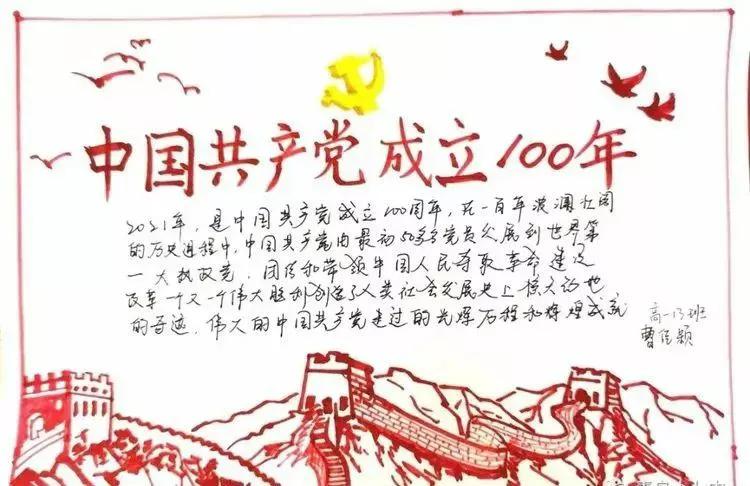 中国共产党成立100年
2021年，是中国共产党成立100周年，在一百年波澜壮阔
的历史进程中，中国共产党由最初50多名党员发展到世界第
一大执政党。团结和带领中国人民夺取革命建设
改革一个又一个伟大胜利创造了人类社会发展史上
的奇迹，伟大的中国共产党走过的光辉历程和辉煌成就
高一13班
曹佳颖